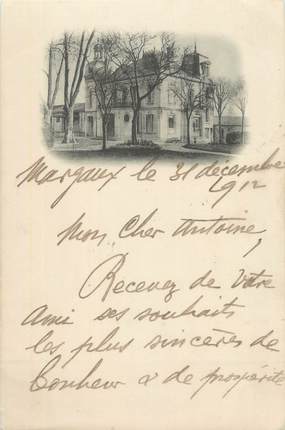 Margaux le 31 décembre
912
Mon Cher Antoine,
Recevez de Votre
ami ses souhaits
les plus sincères de
bonheur & de prospérité